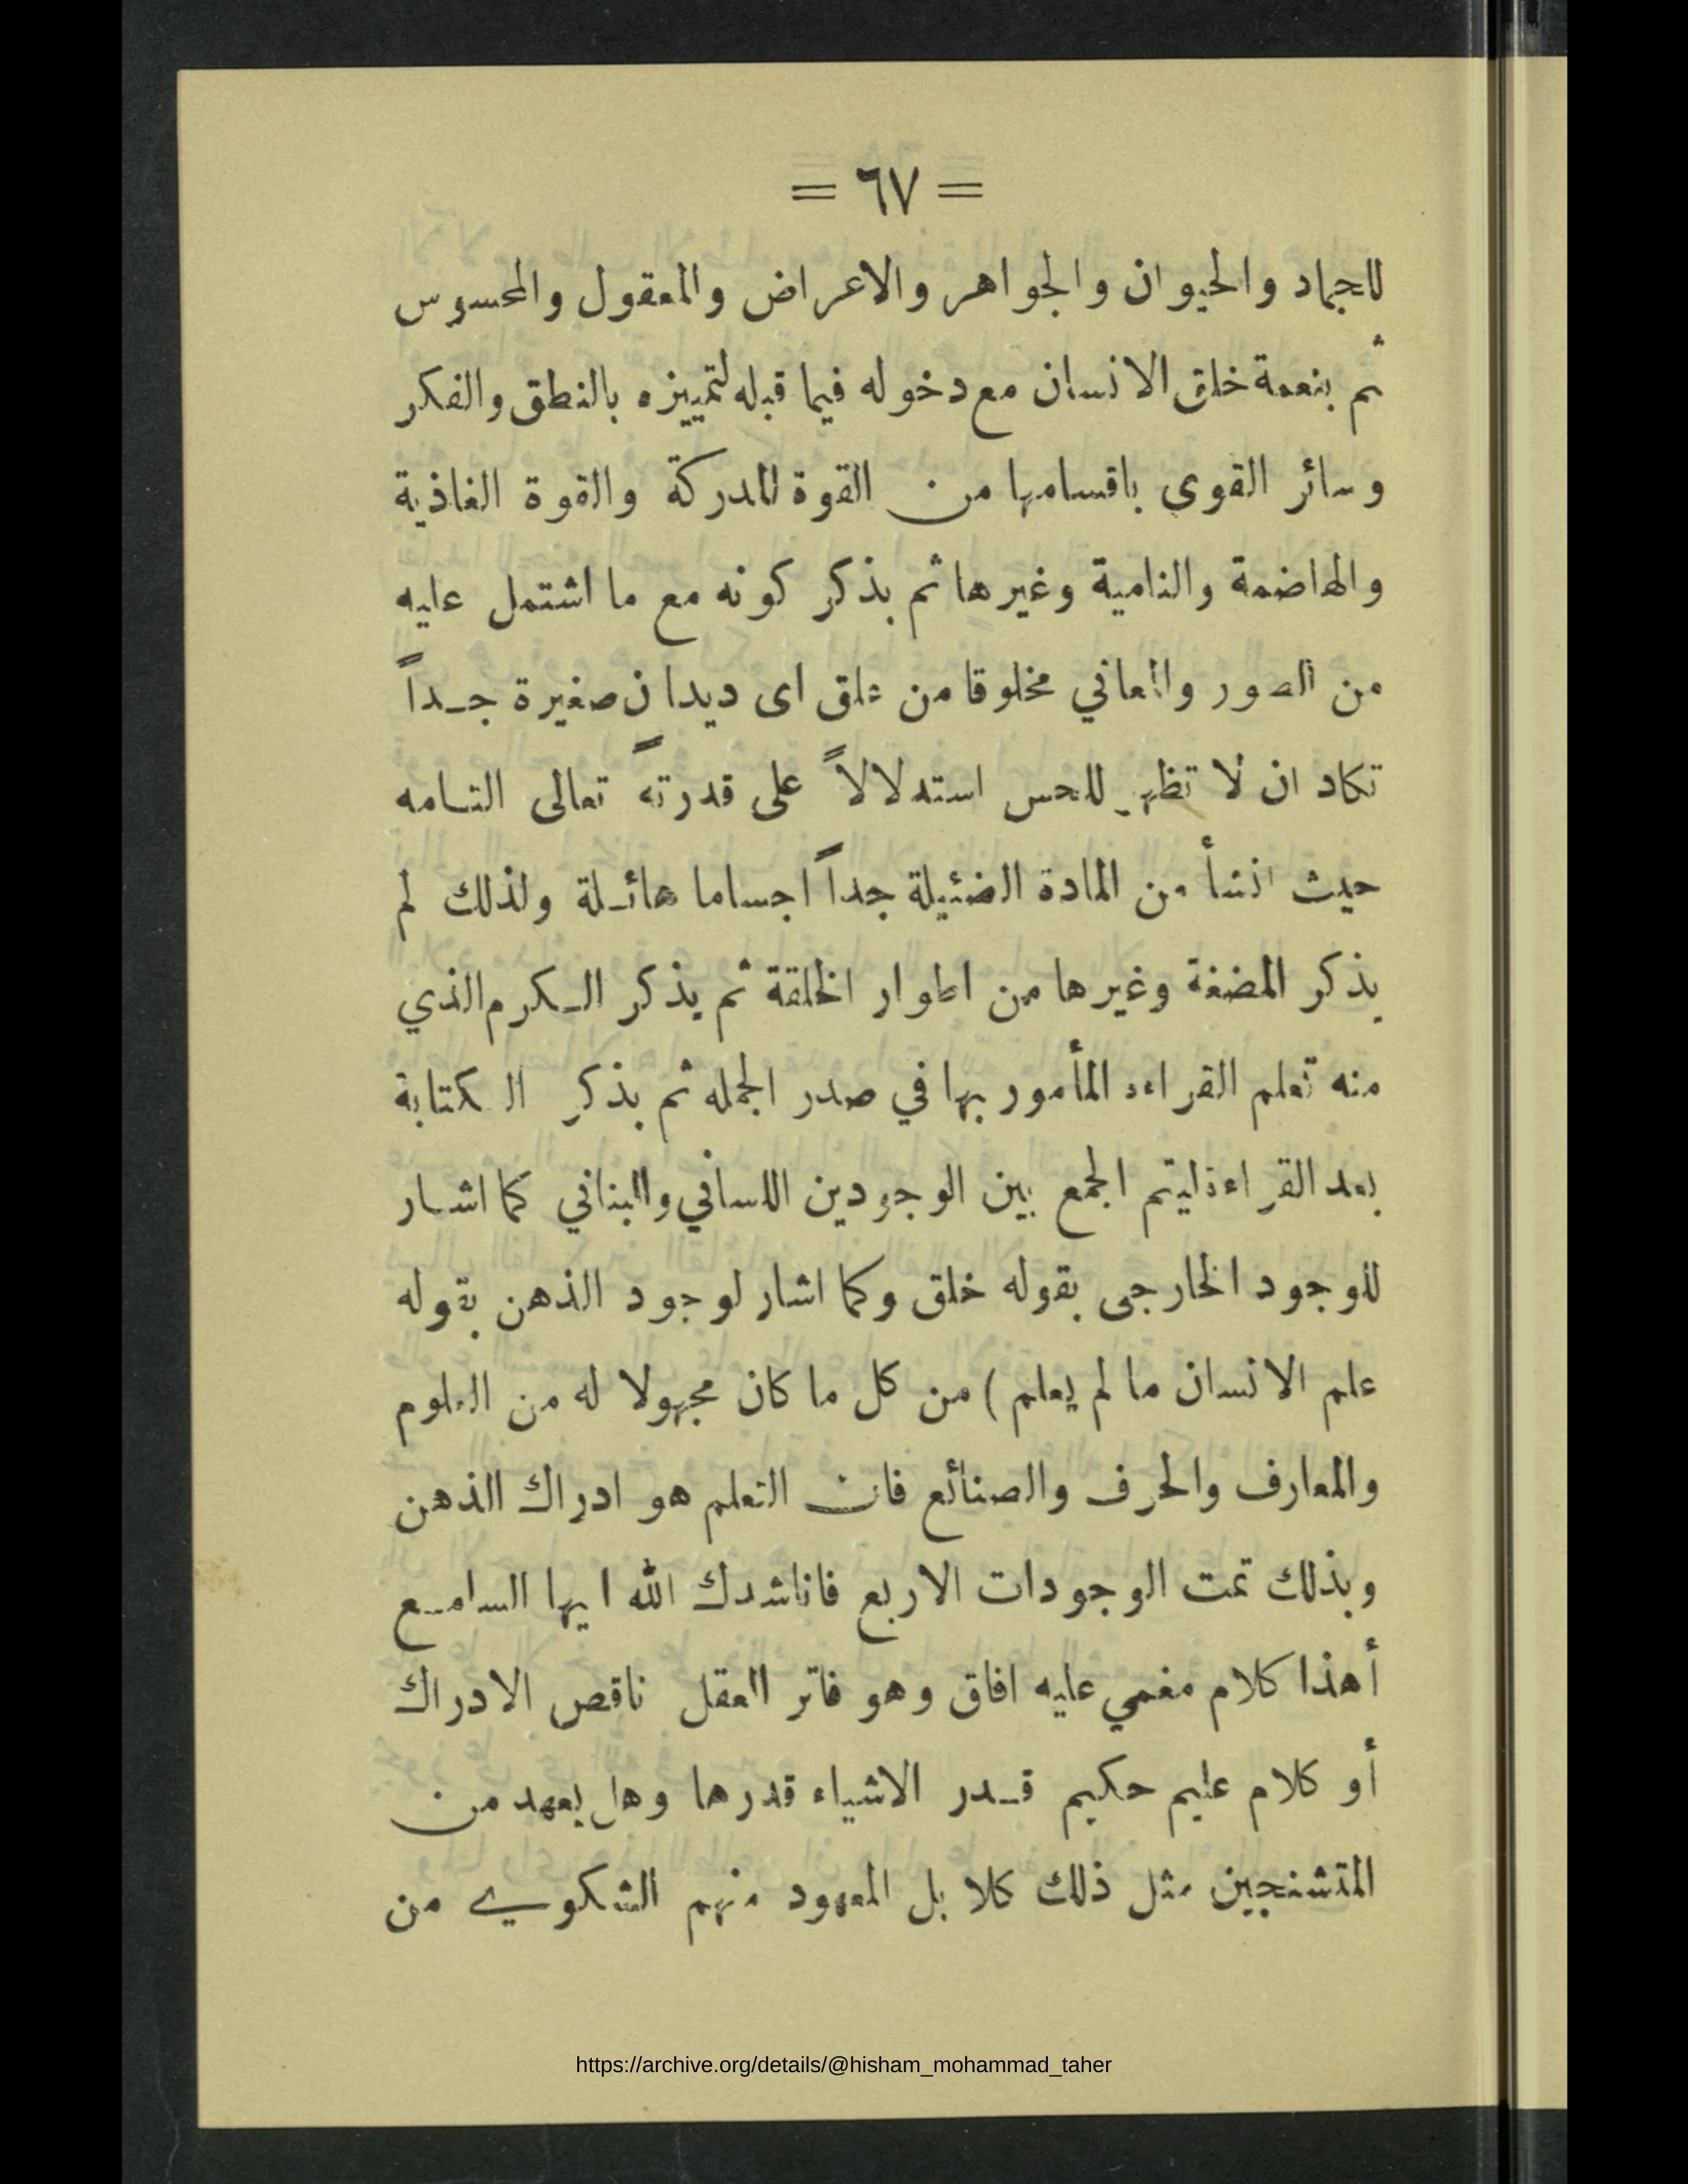 = ٦٧ =
للجماد والحيوان والجواهر والاعراض والمعقول والمحسوس
ثم بنعمة خلق الانسان مع دخوله فيما قبله لتمييزه بالنطق والفكر
وسائر القوى باقسامها من القوة المدركة والقوة الغاذية
والهاضمة والنامية وغيرها ثم بذكر كونه مع ما اشتمل عليه
من الصور والمعاني مخلوقا من علق اى ديدان صغيرة جـداً
تكاد ان لا تظهر للحس استدلالاً على قدرتهً تعالى التـامه
حيث انشأ من المادة الضئيلة جداً اجساما هائـلة ولذلك لم
يذكر المضغة وغيرها من اطوار الخلقة ثم يذكر الـكرم الذي
منه تعلم القراءة المأمور بها في صدر الجمله ثم بذكر الكتابة
بعد القراءة ليتم الجمع بين الوجودين اللساني والبناني كما اشـار
للوجود الخارجى بقوله خلق وكما اشار لوجود الذهن بقوله
علم الانسان ما لم يعلم ) من كل ما كان مجهولا له من العلوم
والمعارف والحرف والصنائع فان التعلم هو ادراك الذهن
وبذلك تمت الوجودات الاربع فاناشدك الله ايها السامـع
أهذا كلام مغمي عليه افاق وهو فاتر العقل ناقص الادراك
أو كلام عليم حكيم قـدر الاشياء قدرها وهل يعهد من
المتشنجين مثل ذلك كلا بل المعهود منهم الشكوي من
https://archive.org/details/@hisham_mohammad_taher